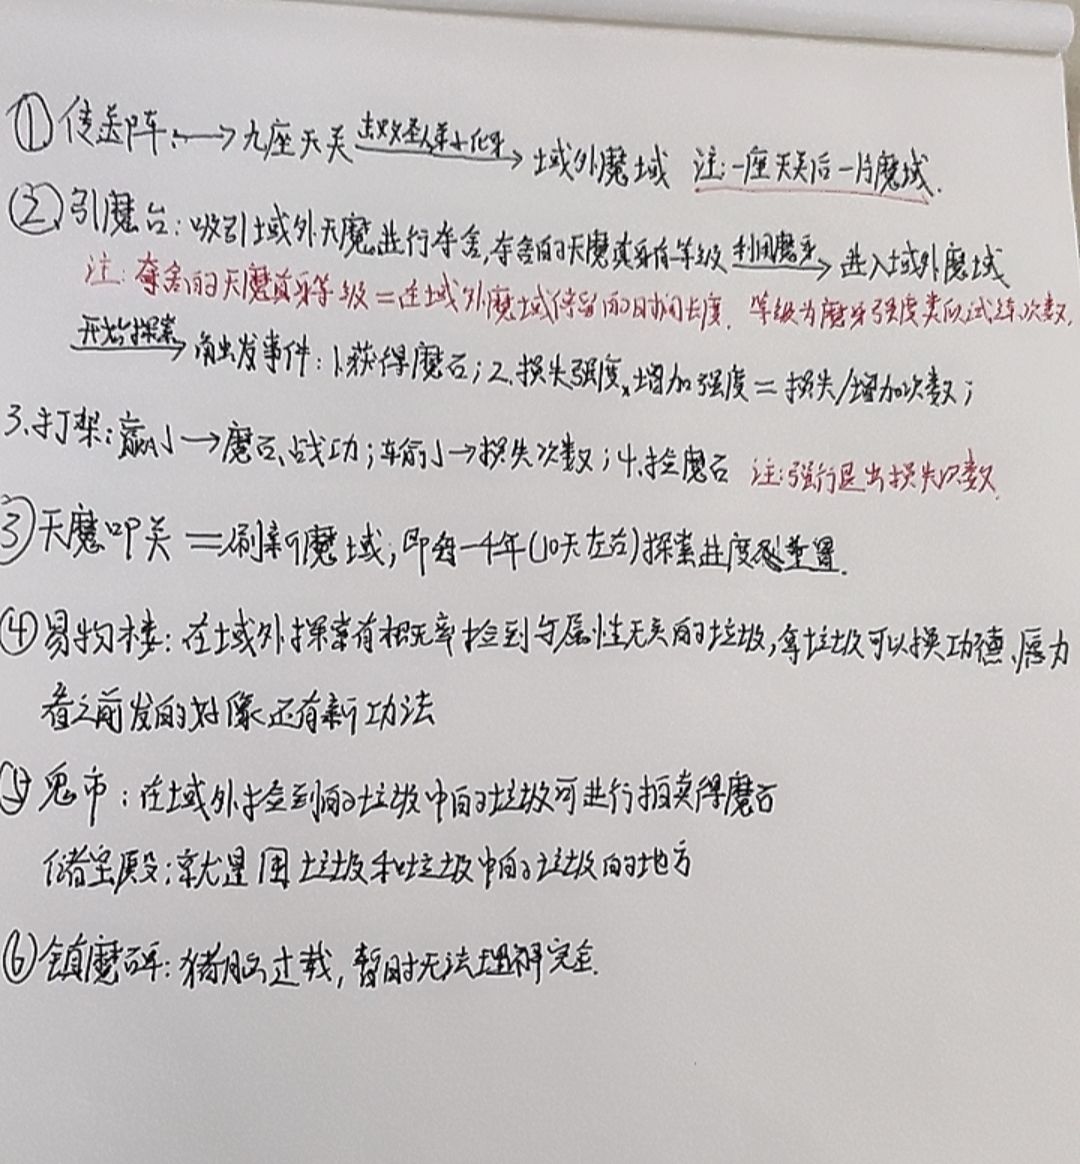 ①传送阵:→九座天关 击败圣人第七化身→域外魔域 注:一座天关后一片魔域.
②引魔台:吸引域外天魔进行夺舍,夺舍的天魔真身有等级 利用魔身→进入域外魔域
注:夺舍的天魔真身等级=在域外魔域停留的时间长度. 等级为魔身强度类似试练次数.
开始探索→触发事件:1.获得魔石;2.损失强度、增加强度=损失/增加次数;
3.打架:赢小→魔石、战功;输小→损失次数;4.捡魔石 注:强行退出损失次数
③天魔叩关=刷新魔域,即每一千年(10天左右)探索进度重置.
④易物楼:在域外探索有概率捡到与属性无关的垃圾,拿垃圾可以换功德、愿力
看之前发的好像还有新功法
⑤鬼市:在域外捡到的垃圾中的垃圾可进行拍卖得魔石
储宝殿:就是囤垃圾和垃圾中的垃圾的地方
⑥镇魔碑:猪脑过载,暂时无法理解完全.